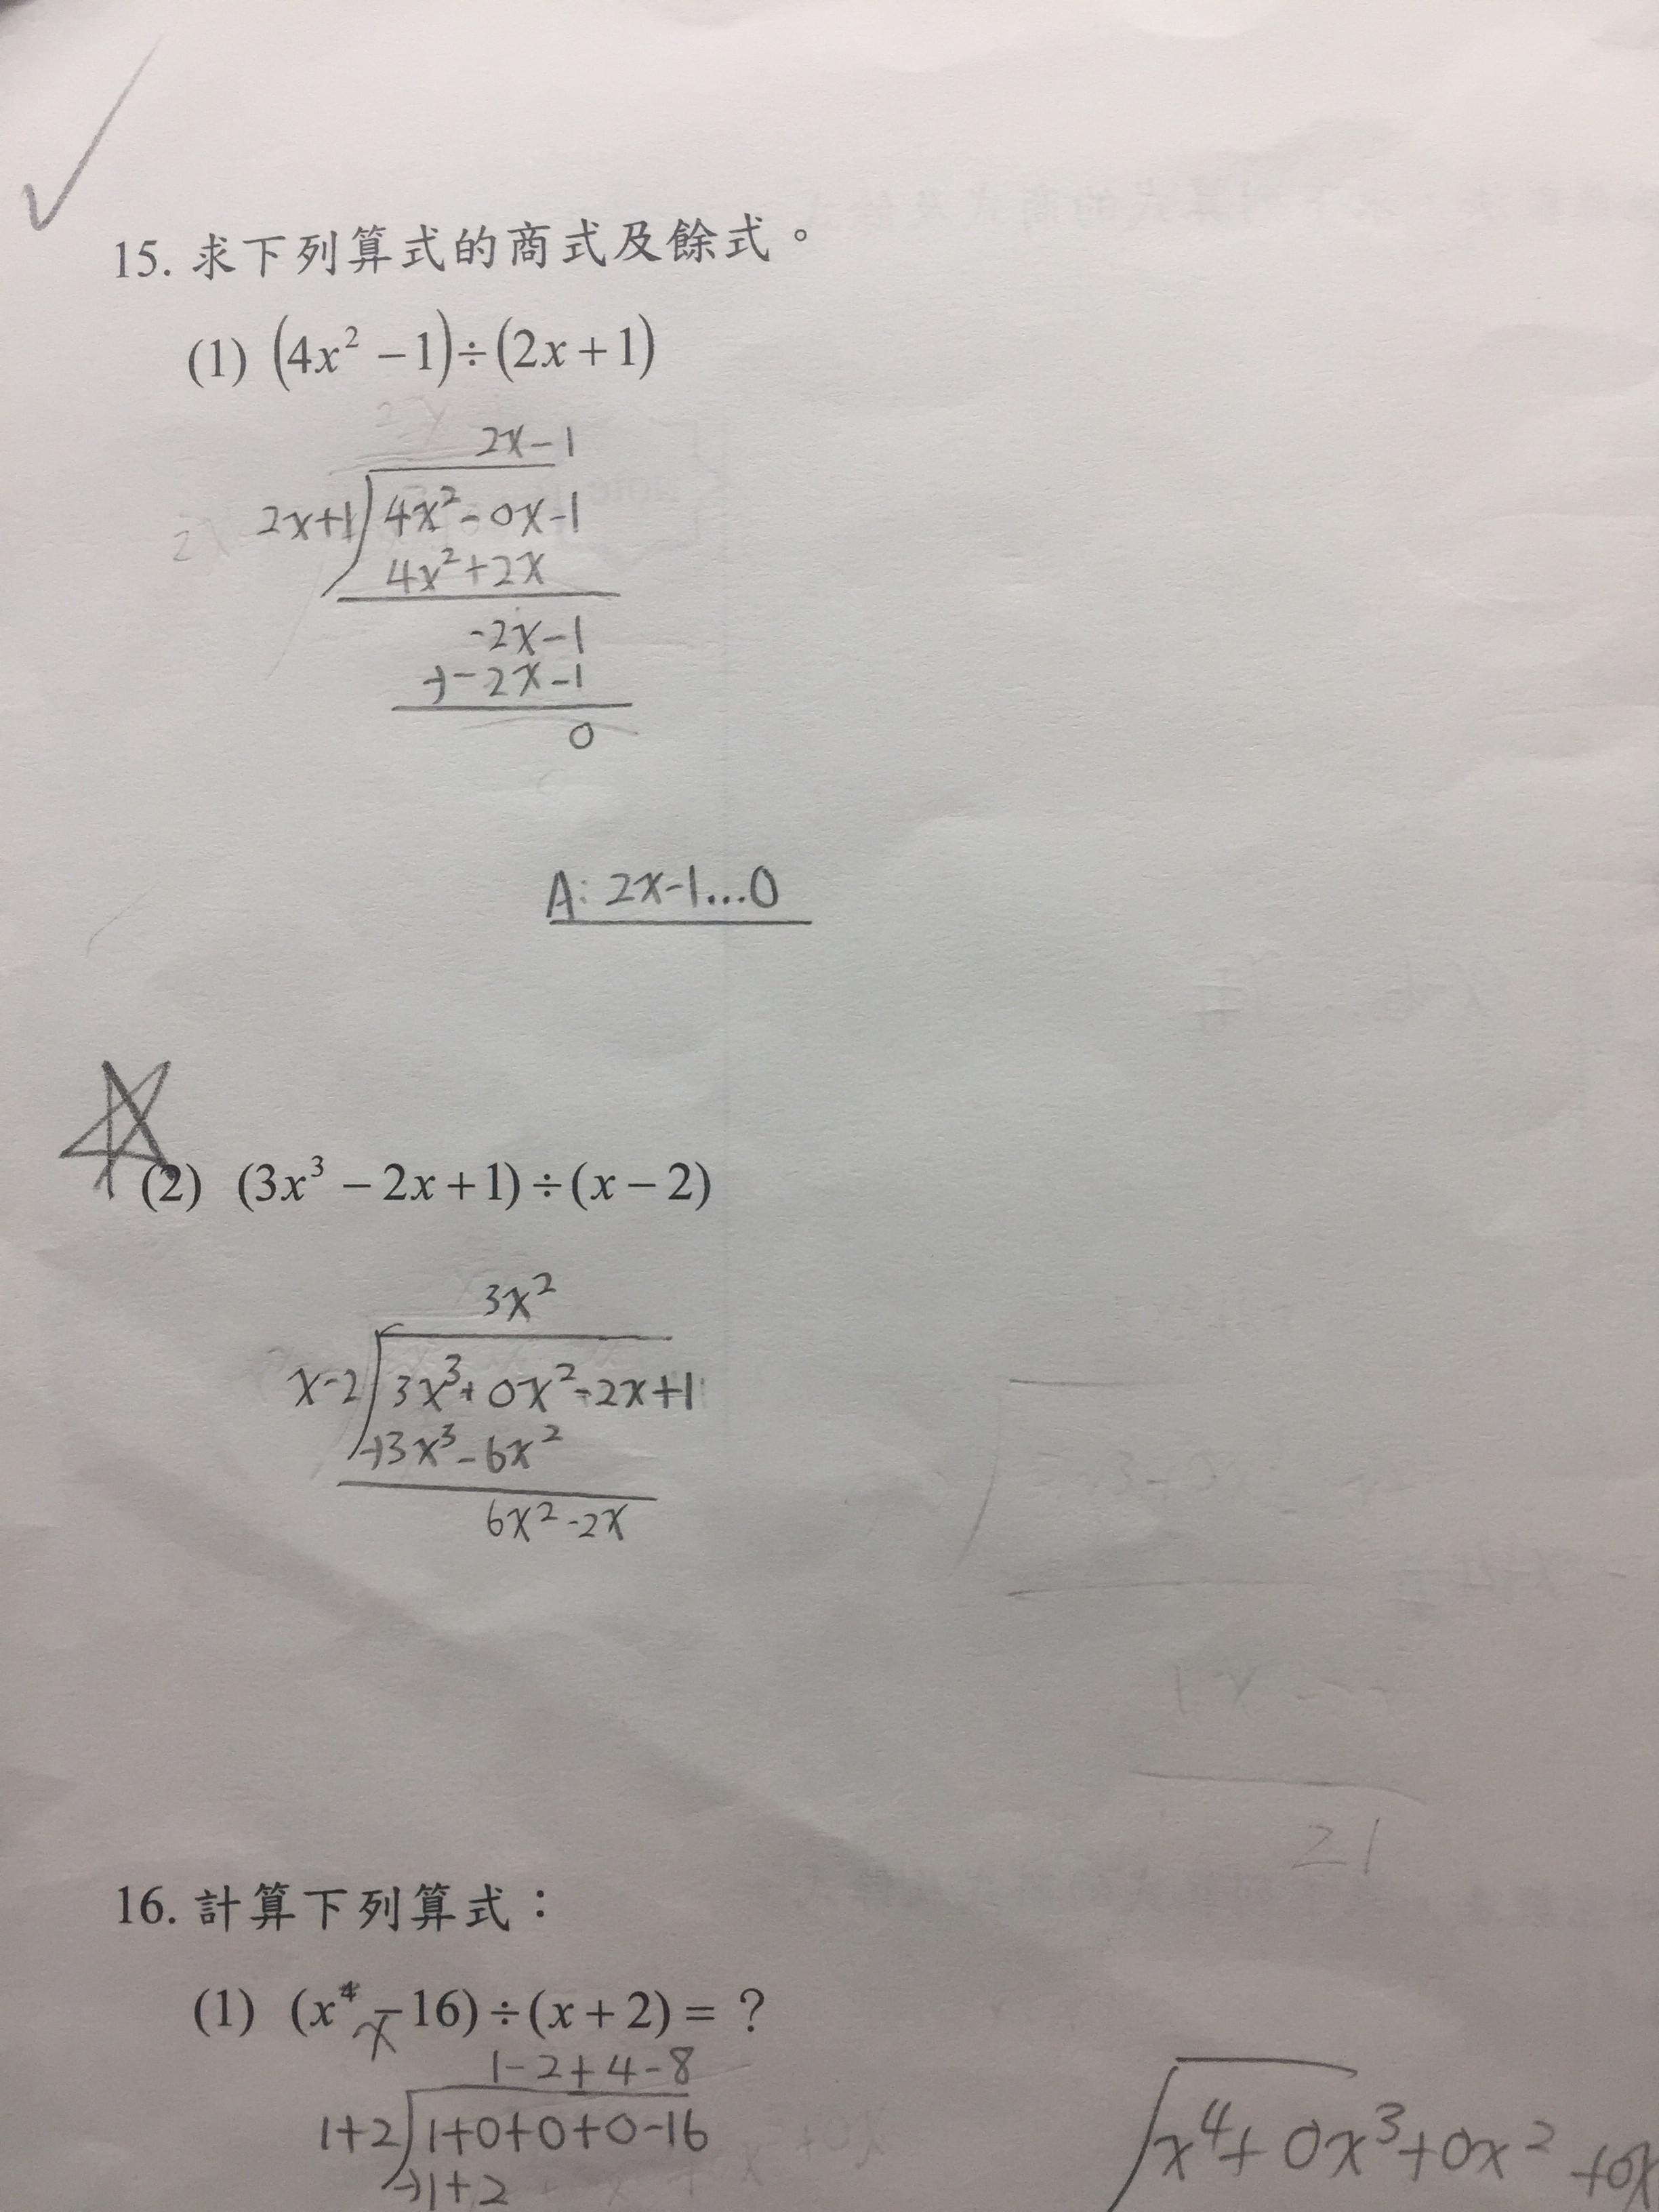 15. 求下列算式的商式及餘式。
(1) (4x² − 1) ÷ (2x + 1)
2x-1
2x+1 4x²-0x-1
4x²+2x
-2x-1
-)-2x-1
0
A: 2x-1...0
(2) (3x³ − 2x + 1) ÷ (x − 2)
3x²
x-2 3x³+0x²-2x+1
-)3x³-6x²
6x²-2x
21
16. 計算下列算式：
(1) (x⁴ − 16) ÷ (x + 2) = ?
x
1-2+4-8
1+2 1+0+0+0-16
-)1+2
x⁴+0x³+0x²+0x